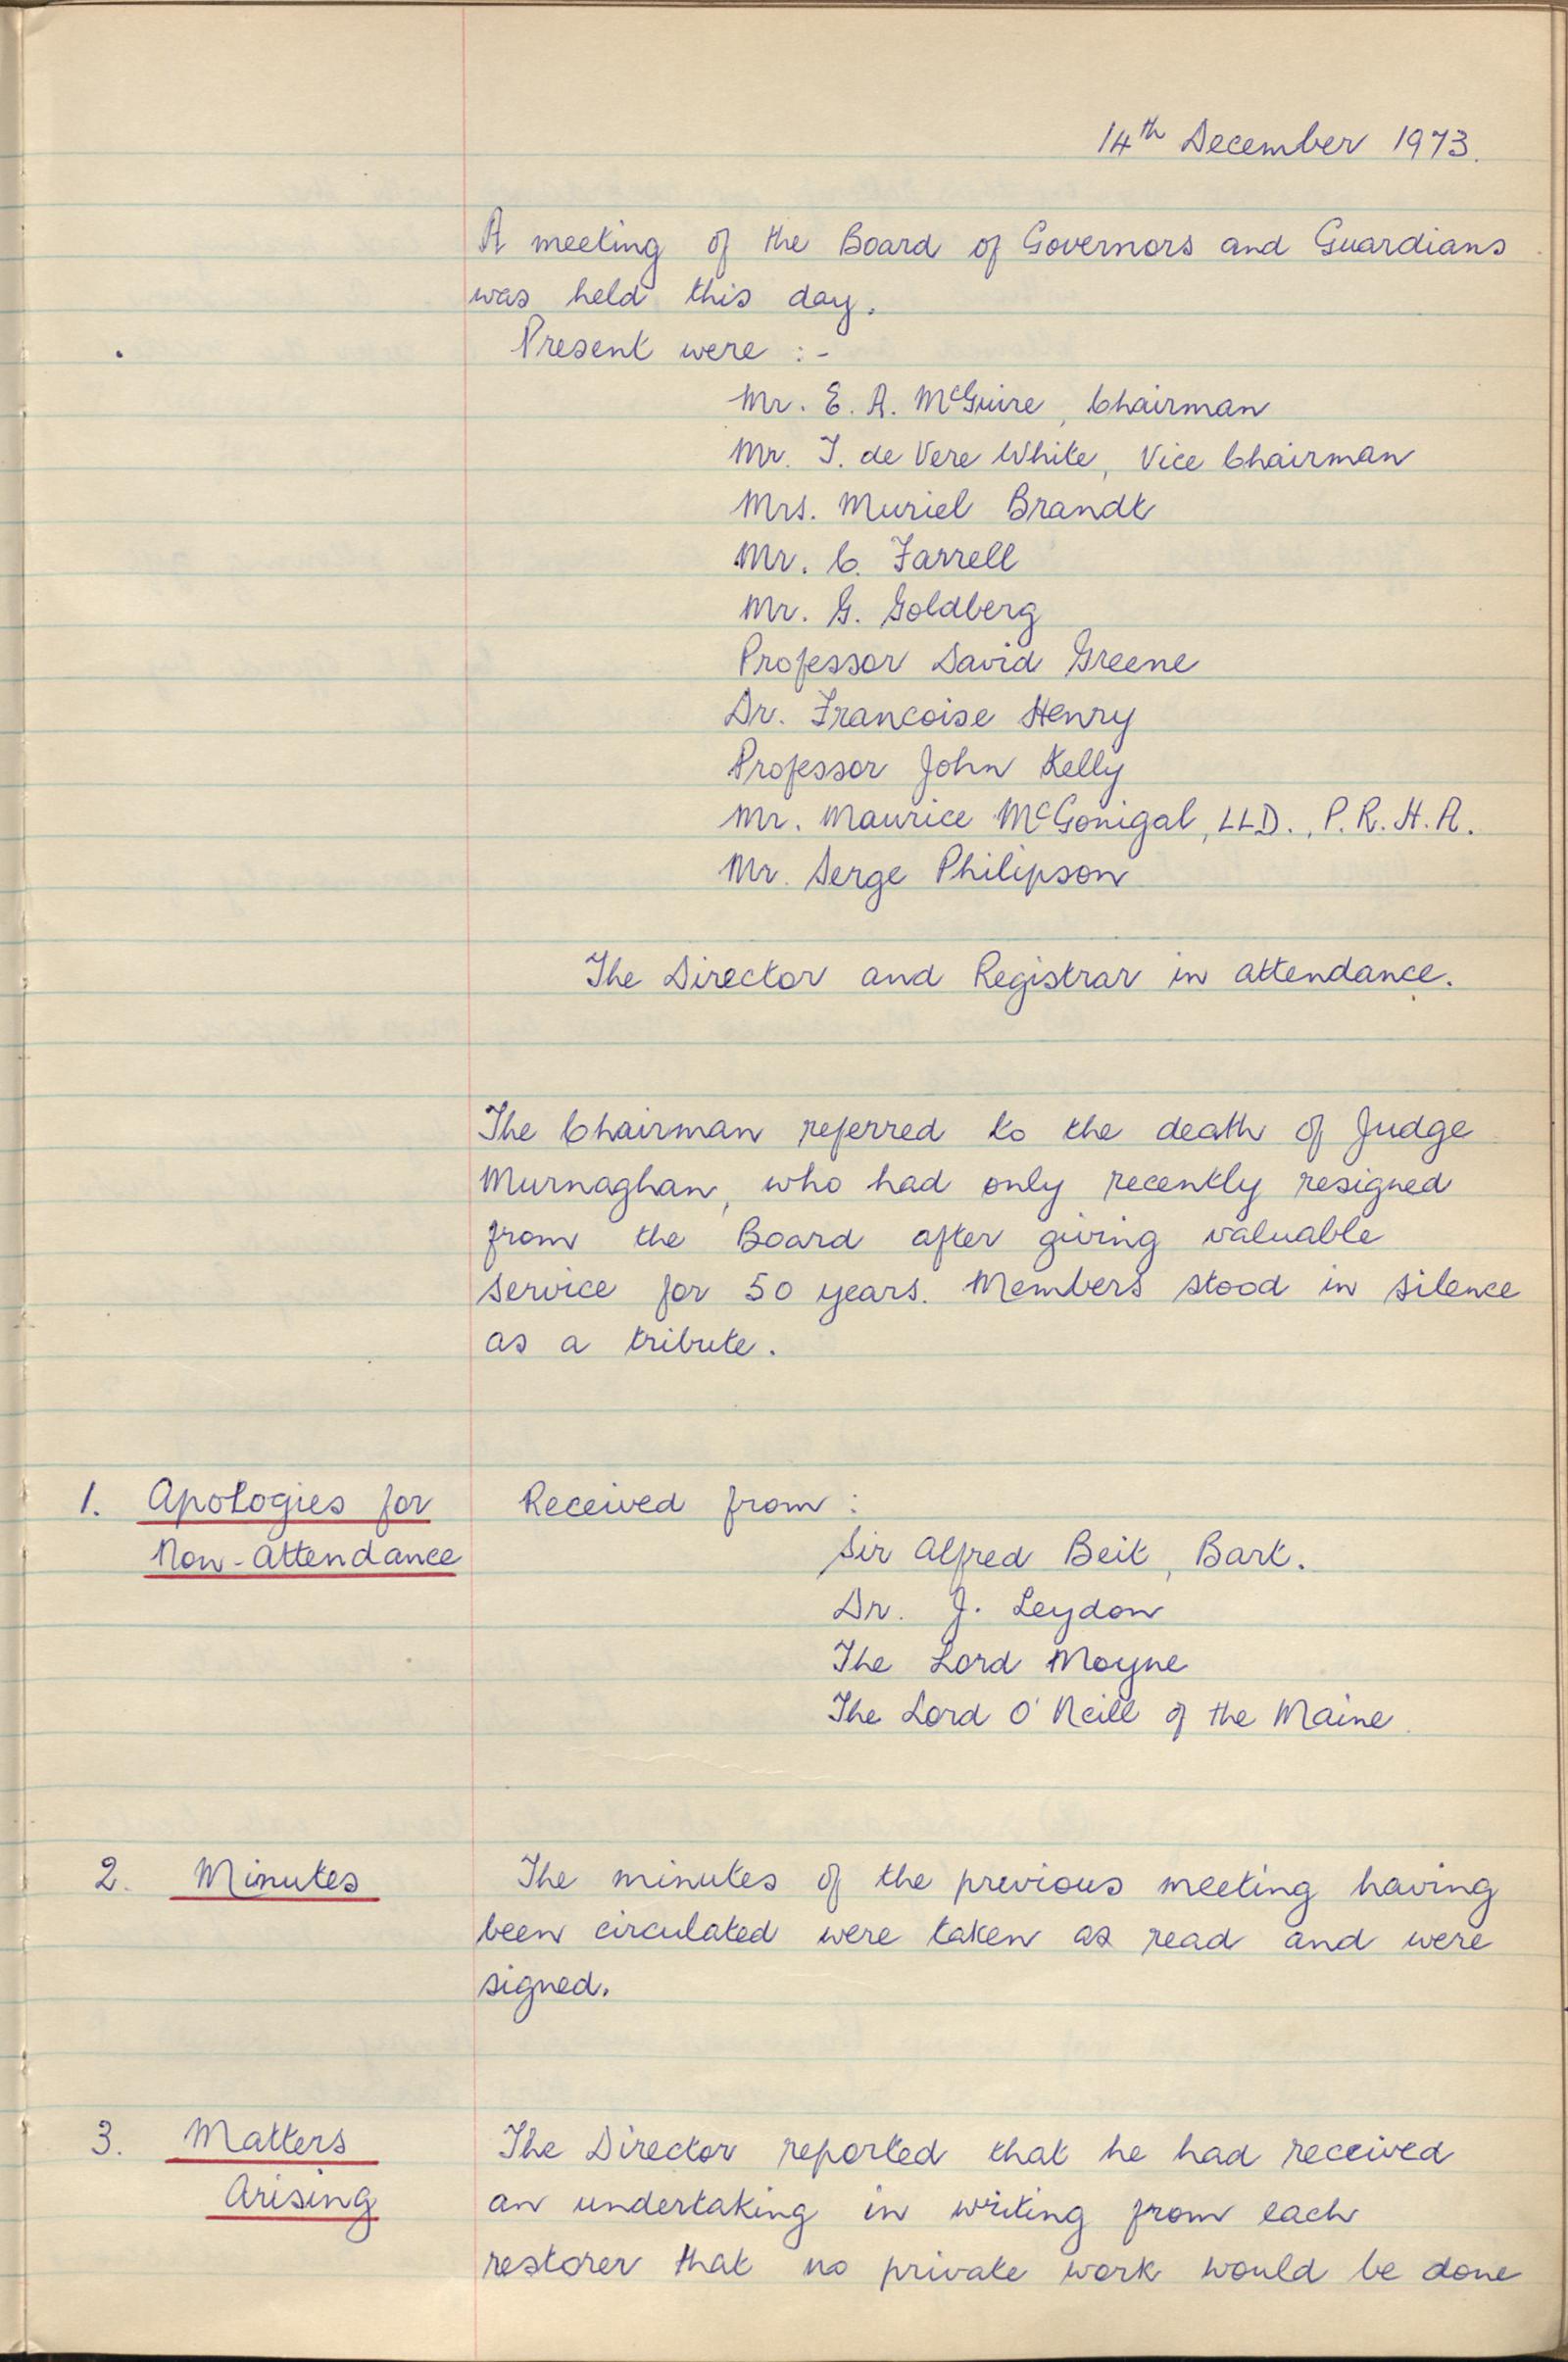 14th December 1973.
A meeting of the Board of Governors and Guardians
was held this day.
Present were :-
Mr. E. A. McGuire, Chairman
Mr. T. de Vere White, Vice Chairman
Mrs. Muriel Brandt
Mr. C. Farrell
Mr. G. Goldberg
Professor David Greene
Dr. Francoise Henry
Professor John Kelly
Mr. Maurice McGonigal, LLD., P.R.H.A.
Mr. Serge Philipson
The Director and Registrar in attendance.
The Chairman referred to the death of Judge
Murnaghan, who had only recently resigned
from the Board after giving valuable
service for 50 years. Members stood in silence
as a tribute.
1. Apologies for Received from :
Non-Attendance
Sir Alfred Beit, Bart.
Dr. J. Leydon
The Lord Moyne
The Lord O'Neill of the Maine.
2. Minutes The minutes of the previous meeting having
been circulated were taken as read and were
signed.
3. Matters The Director reported that he had received
Arising an undertaking in writing from each
restorer that no private work would be done